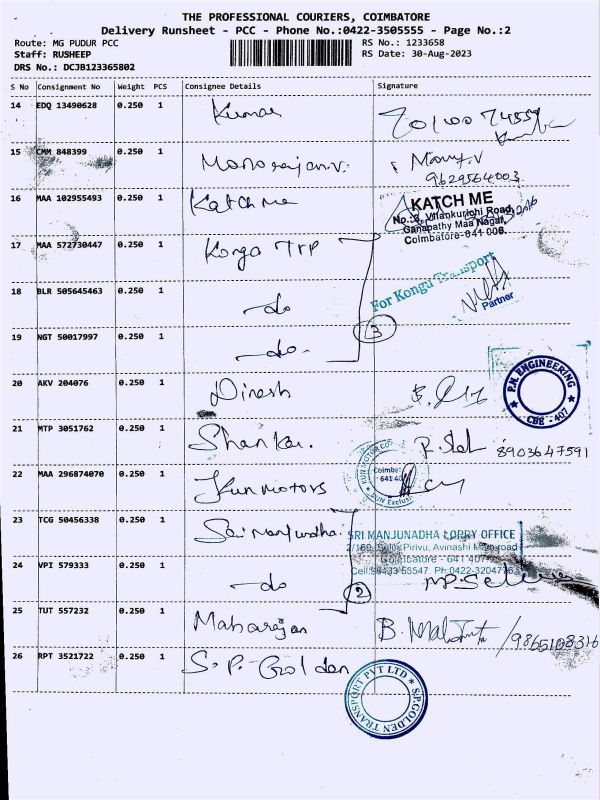 THE PROFESSIONAL COURIERS, COIMBATORE
Delivery Runsheet - PCC - Phone No.:0422-3505555 - Page No.:2
Route: MG PUDUR PCC
RS No.: 1233658
Staff: RUSHEEP
RS Date: 30-Aug-2023
DRS No.: DCJB123365802
S No Consignment No Weight PCS Consignee Details Signature
14 EDQ 13490628 0.250 1 Kumar
15 CMM 848399 0.250 1 Manorajan.v. Manoj.V
9629564003
16 MAA 102955493 0.250 1 Katch me
KATCH ME
No.:3, Vilankurichi Road,
Ganapathy Maa Nagar,
Coimbatore-641 006.
17 MAA 572730447 0.250 1 Kongu TRP
For Kongu Transport
Partner
18 BLR 505645463 0.250 1 do
3
19 NGT 50017997 0.250 1 do
20 AKV 204076 0.250 1 Dinesh
P.N. ENGINEERING
CBE - 407
21 MTP 3051762 0.250 1 Shankar. 8903647591
22 MAA 296874070 0.250 1 Kun motors
KUN MOTOR CO
Coimbe
641 40
KUN Exclusi
23 TCG 50456338 0.250 1 Sri manjunadha
SRI MANJUNADHA LORRY OFFICE
Pirivu, Avinashi Main road
Coimbatore - 641 407
Ph:0422-3204776
24 VPI 579333 0.250 1 do
2
25 TUT 557232 0.250 1 Maharajan
26 RPT 3521722 0.250 1 S.P. Golden
S.P.GOLDEN TRANSPORT PVT LTD